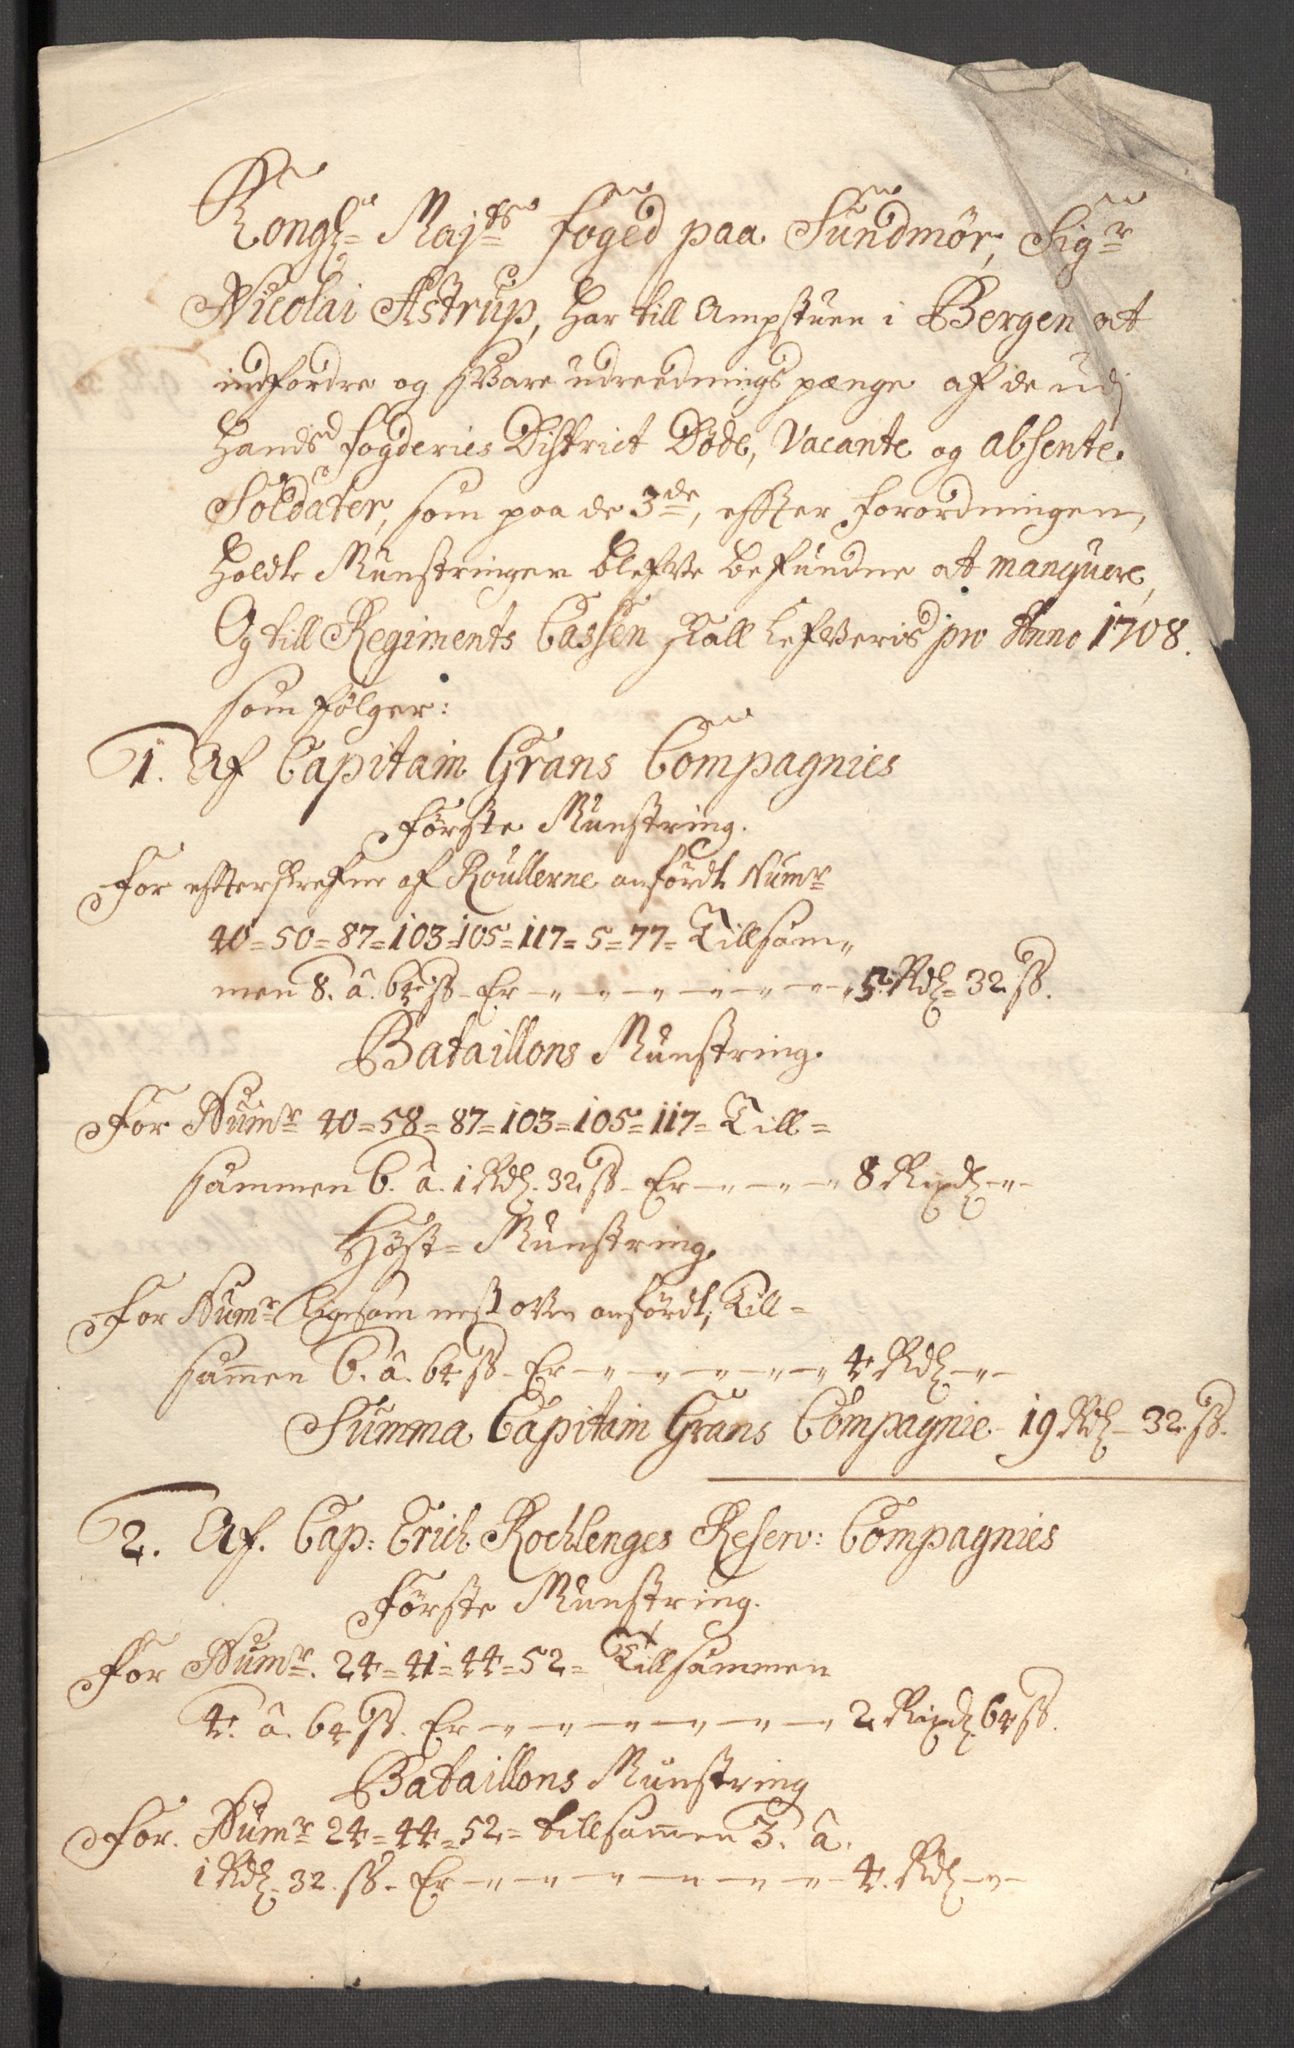 Kongl: Majts foged paa Sundmør, Sigr
Nicolai Astrup, har till Ampstuen i Bergen at
indfordre og svare udreednings penge af de udj
hands fogderies District Døde, Vacante og absente
Soldater, som paa de 3de, effter forordningen,
holdte Munstringer blefve befundne at manquere,
Og till Regiments Cassen skall lefveris pro Anno 1708.
som følger:
1. Af Capitain Grans Compagnies
Første Munstring.
For efterskrefne af Roullerne anførdte Numr
40=50=87=103=105=117=5=77= Tillsam=
men 8. â. 64 ss - Er - - - - - - 5. Rdl= 32. ss.
Bataillons Munstring.
For Numr 40=58=87=103=105=117= Till=
sammen 6. â. 1 Rdl. 32. ss - Er - - - 8 Rixdl - -
Høst= Munstring.
For Numr ligesom nest oven anførdt, Till=
sammen 6. â. 64 ss - Er - - - - - 4 Rdl - -
Summa Capitain Grans Compagnie - 19 Rdl - 32. ss.
2. Af. Cap: Erich Rochlenges Reserv: Compagnies
Første Munstring.
For Numr. 24=41=44=52= Tillsammen
4. â. 64 ss. Er - - - - - - 2 Rixdl. 64 ss.
Bataillons Munstring
For. Numr 24=44=52= tillsammen 3. â.
1 Rdl. 32. ss - Er - - - - - - 4. Rdl - -